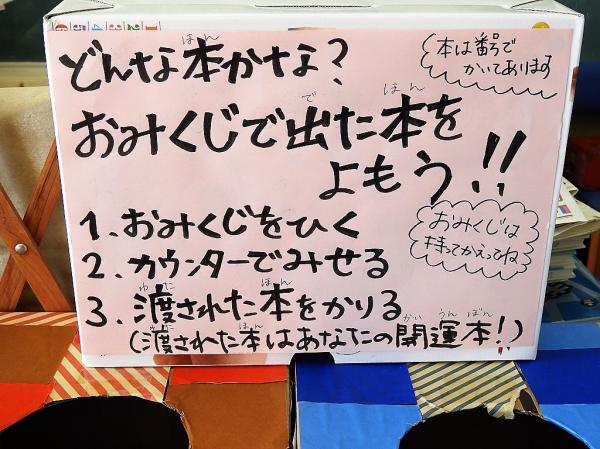 ほん
どんな本かな？
本は番号で
かいてあります
で ほん
おみくじで出た本を
よもう!!
1. おみくじをひく
おみくじは
持ってかえってね
2. カウンターでみせる
ほん
3. 渡された本をかりる
ほん かい うん ぼん
(渡された本はあなたの開運本!)